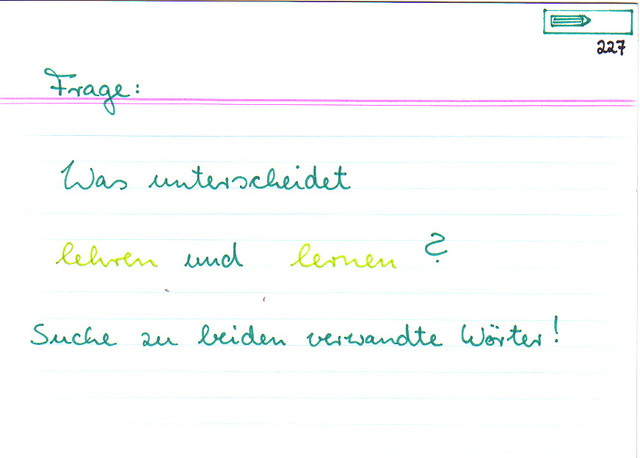 227
Frage:
Was unterscheidet
lehren und lernen?
Suche zu beiden verwandte Wörter!